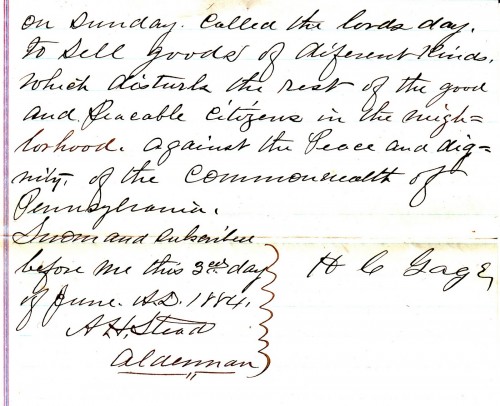 on Sunday. Called the lords day.
to Sell goods of diferent Kinds.
which disturbs the rest of the good
and Peacable Citizens in the neigh=
borhood. against the Peace and dig=
nity. of the Commonwealth of
Pennsylvania.
Sworn and Subscribed
before me this 3rd day
of June. A.D. 1884.
A H. Stead
Alderman
H C Gage